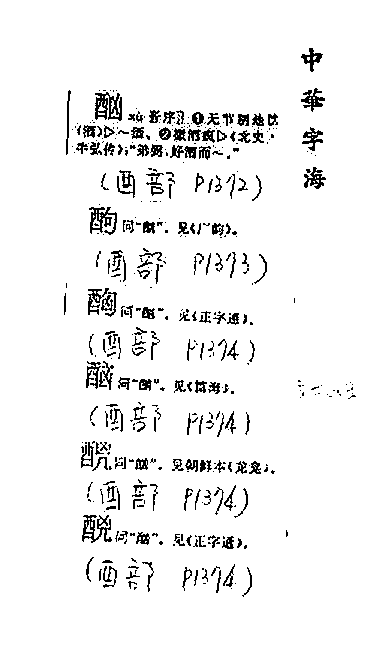 中華字海
酗 xù 音序。❶无节制地饮
(酒)▷～酒。❷撒酒疯▷《北史·
牛弘传》:"弟弼,好酒而～。"
(酉部 P1372)
酌 同"酗"。见《广韵》。
(酉部 P1373)
同"酗"。见《正字通》。
(酉部 P1374)
同"酗"。见《篇海》。
(酉部 P1374)
同"酗"。见朝鲜本《龙龛》。
(酉部 P1374)
同"酗"。见《正字通》。
(酉部 P1374)